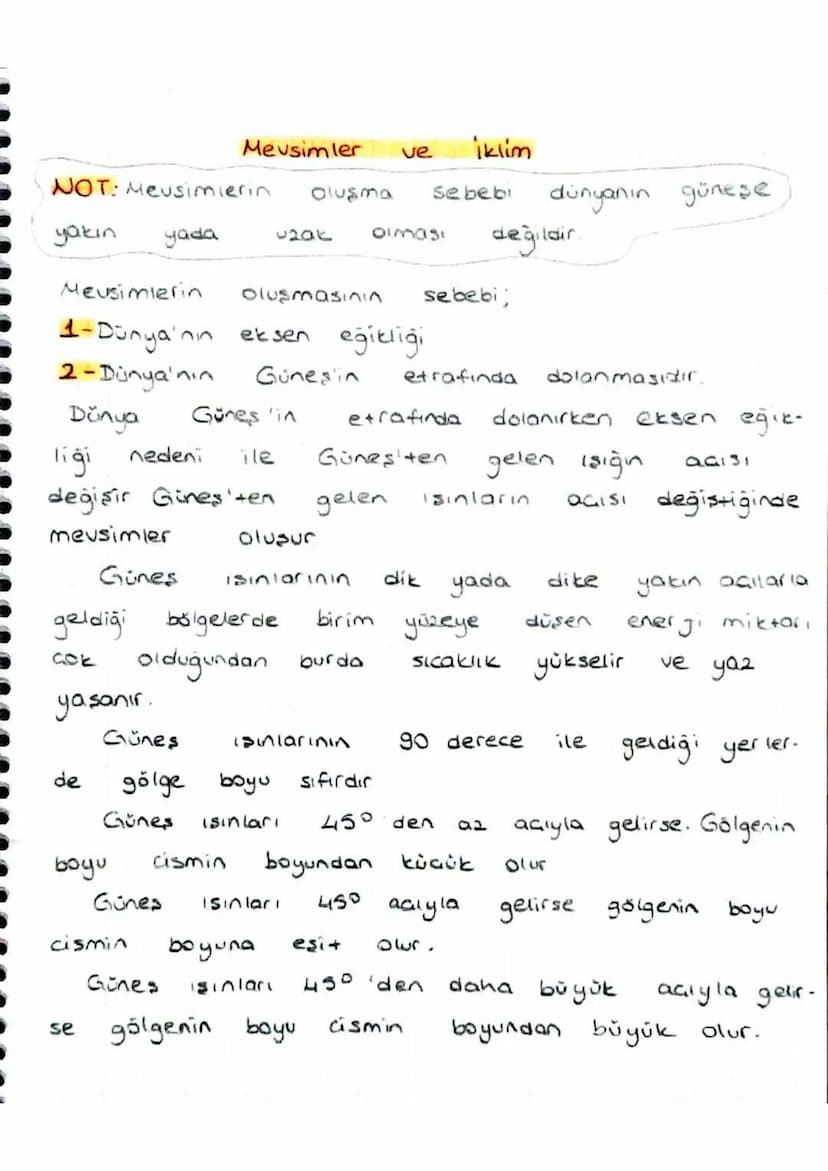 Mevsimler ve İklim
NOT: Mevsimlerin oluşma sebebi dünyanın güneşe
yakın yada uzak olması değildir.
Mevsimlerin oluşmasının sebebi;
1-Dünya'nın eksen eğikliği
2-Dünya'nın Güneş'in etrafında dolanmasıdır.
Dünya Güneş'in etrafında dolanırken eksen eğik-
liği nedeni ile Güneş'ten gelen ışığın açısı
değişir Güneş'ten gelen ışınların açısı değiştiğinde
mevsimler oluşur
Güneş ışınlarının dik yada dike yakın açılarla
geldiği bölgelerde birim yüzeye düşen enerji miktarı
çok olduğundan burda sıcaklık yükselir ve yaz
yaşanır.
Güneş ışınlarının 90 derece ile geldiği yerler-
de gölge boyu sıfırdır
Güneş ışınları 45° den az açıyla gelirse. Gölgenin
boyu cismin boyundan küçük olur
Güneş ışınları 45° açıyla gelirse gölgenin boyu
cismin boyuna eşit olur.
Güneş ışınları 45° 'den daha büyük açıyla gelir-
se gölgenin boyu cismin boyundan büyük olur.